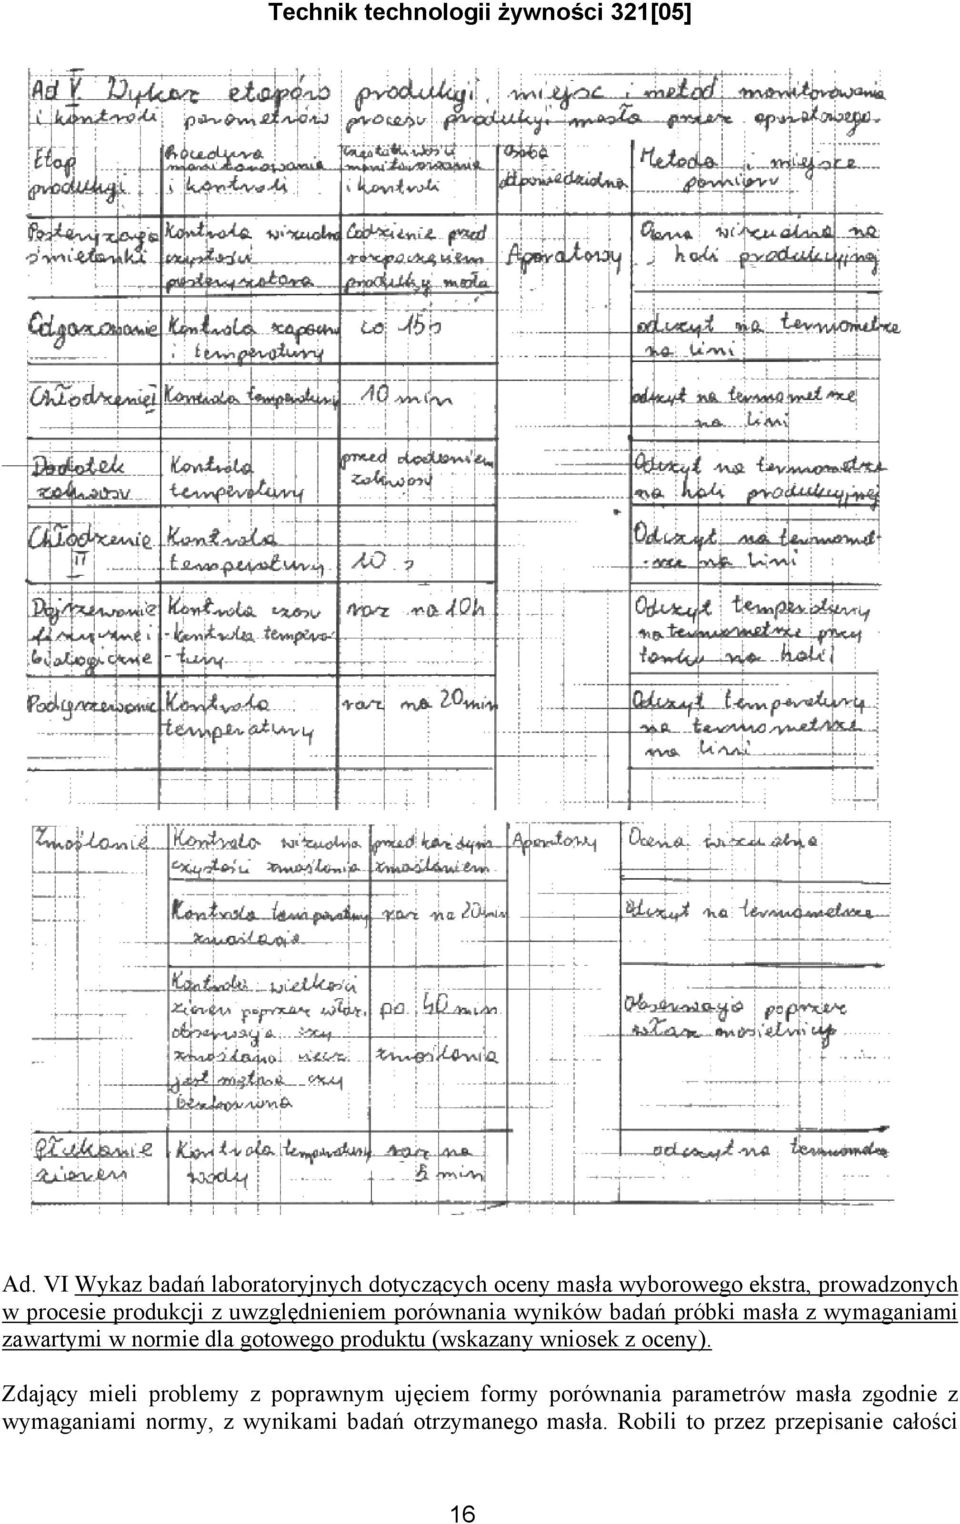 Technik technologii żywności 321[05]
Ad V. Wykaz etapów produkcji, miejsc i metod monitorowania
i kontroli parametrów procesu produkcji masła przez aparatowego.
Etap produkcji
Procedura monitorowania i kontroli
Częstotliwości monitorowania i kontroli
Osoba odpowiedzialna
Metoda i miejsce pomiaru
Pasteryzacja śmietanki
Kontrola wizualna czystości pasteryzatora
Codziennie przed rozpoczęciem produkcji masła
Aparatowy
Ocena wizualna na hali produkcyjnej
Odgazowanie
Kontrola zapachu i temperatury
co 15s
odczyt na termometrze na lini
Chłodzenie I
Kontrola temperatury
10 min
odczyt na termometrze na lini
Dodatek zakwasu
Kontrola temperatury
przed dodaniem zakwasu
Odczyt na termometrze na hali produkcyjnej
Chłodzenie II
Kontrola temperatury
10 s
Odczyt na termometrze na lini
Dojrzewanie fizyczne i biologiczne
Kontrola czasu
-kontrola temperatury
raz na 10h
Odczyt temperatury na termometrze przy tanku na hali
Podgrzewanie
Kontrola temperatury
raz na 20min
Odczyt temperatury na termometrze na lini
Zmaślanie
Kontrola wizualna czystości zmaślania
przed każdym zmaślaniem
Aparatowy
Ocena wizualna
Kontrola temperatury zmaślania
raz na 20min
Odczyt na termometrze
Kontrola wielkości ziaren poprzez właz, obserwacja czy zmaślana ciecz jest mętna czy bezbarwna
po 40 min zmaślania
Obserwacja poprzez właz masielnicy
Płukanie ziaren
Kontrola temperatury wody
raz na 5 min
odczyt na termometrze
Ad. VI Wykaz badań laboratoryjnych dotyczących oceny masła wyborowego ekstra, prowadzonych
w procesie produkcji z uwzględnieniem porównania wyników badań próbki masła z wymaganiami
zawartymi w normie dla gotowego produktu (wskazany wniosek z oceny).
Zdający mieli problemy z poprawnym ujęciem formy porównania parametrów masła zgodnie z
wymaganiami normy, z wynikami badań otrzymanego masła. Robili to przez przepisanie całości
16